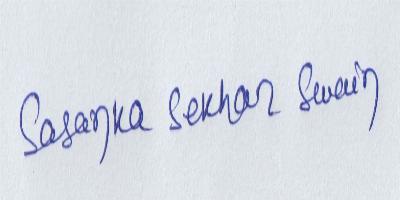 Sasanka Sekhar Swain